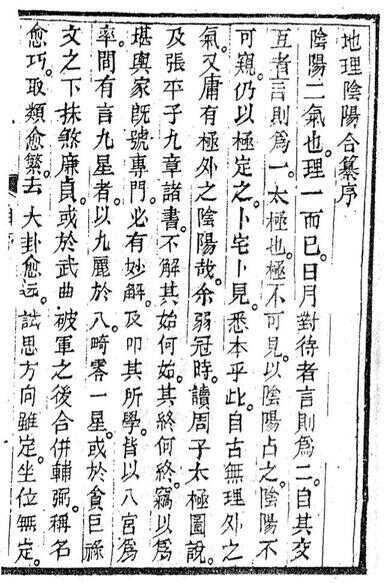 地理陰陽合纂序
陰陽二氣也。理一而已。日月對待者言則爲二。自其交
互者言則爲一。太極也。極不可見。以陰陽占之。陰陽不
可窺。仍以極定之。卜宅卜見。悉本乎此。自古無理外之
氣。又庸有極外之陰陽哉。余弱冠時。讀周子太極圖說。
及張平子九章諸書。不解其始何始。其終何終。竊以爲
堪輿家旣號專門。必有妙解。及叩其所學。皆以八宮爲
率。間有言九星者。以九麗於八畸零一星。或於貪巨祿
文之下抹煞廉貞。或於武曲被軍之後合併輔弼。稱名
愈巧。取類愈繁。去大卦愈远。試思方向雖定。坐位無定。